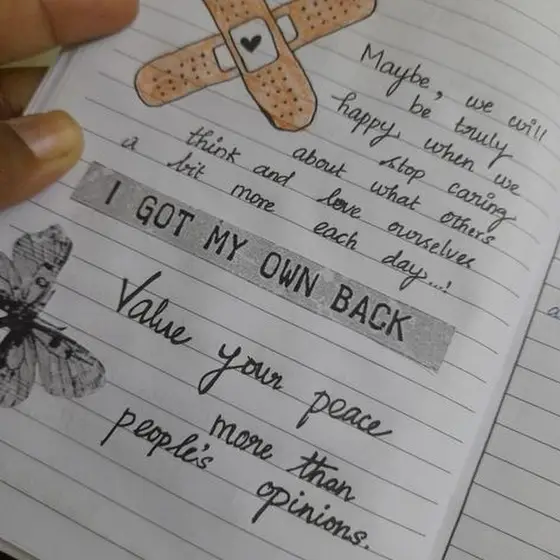 Maybe, we will
be truly
happy, when we
stop caring
about what others
think and love ourselves
a bit more each day...!
I GOT MY OWN BACK
Value your peace
more than
people's opinions.